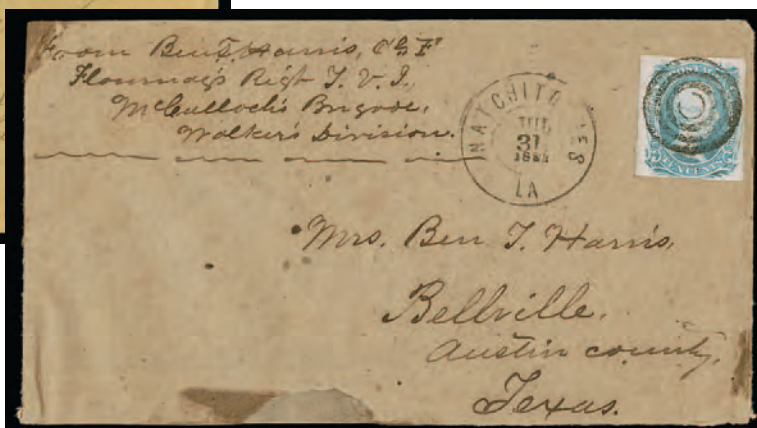 From Ben T. Harris, Co F
Flournoy's Regt T. V. I.,
McCulloch's Brigade,
Walker's Division.
NATCHITOCHES
JUL
31
LA
TEN CENTS
Mrs. Ben T. Harris,
Bellville,
Austin county,
Texas.